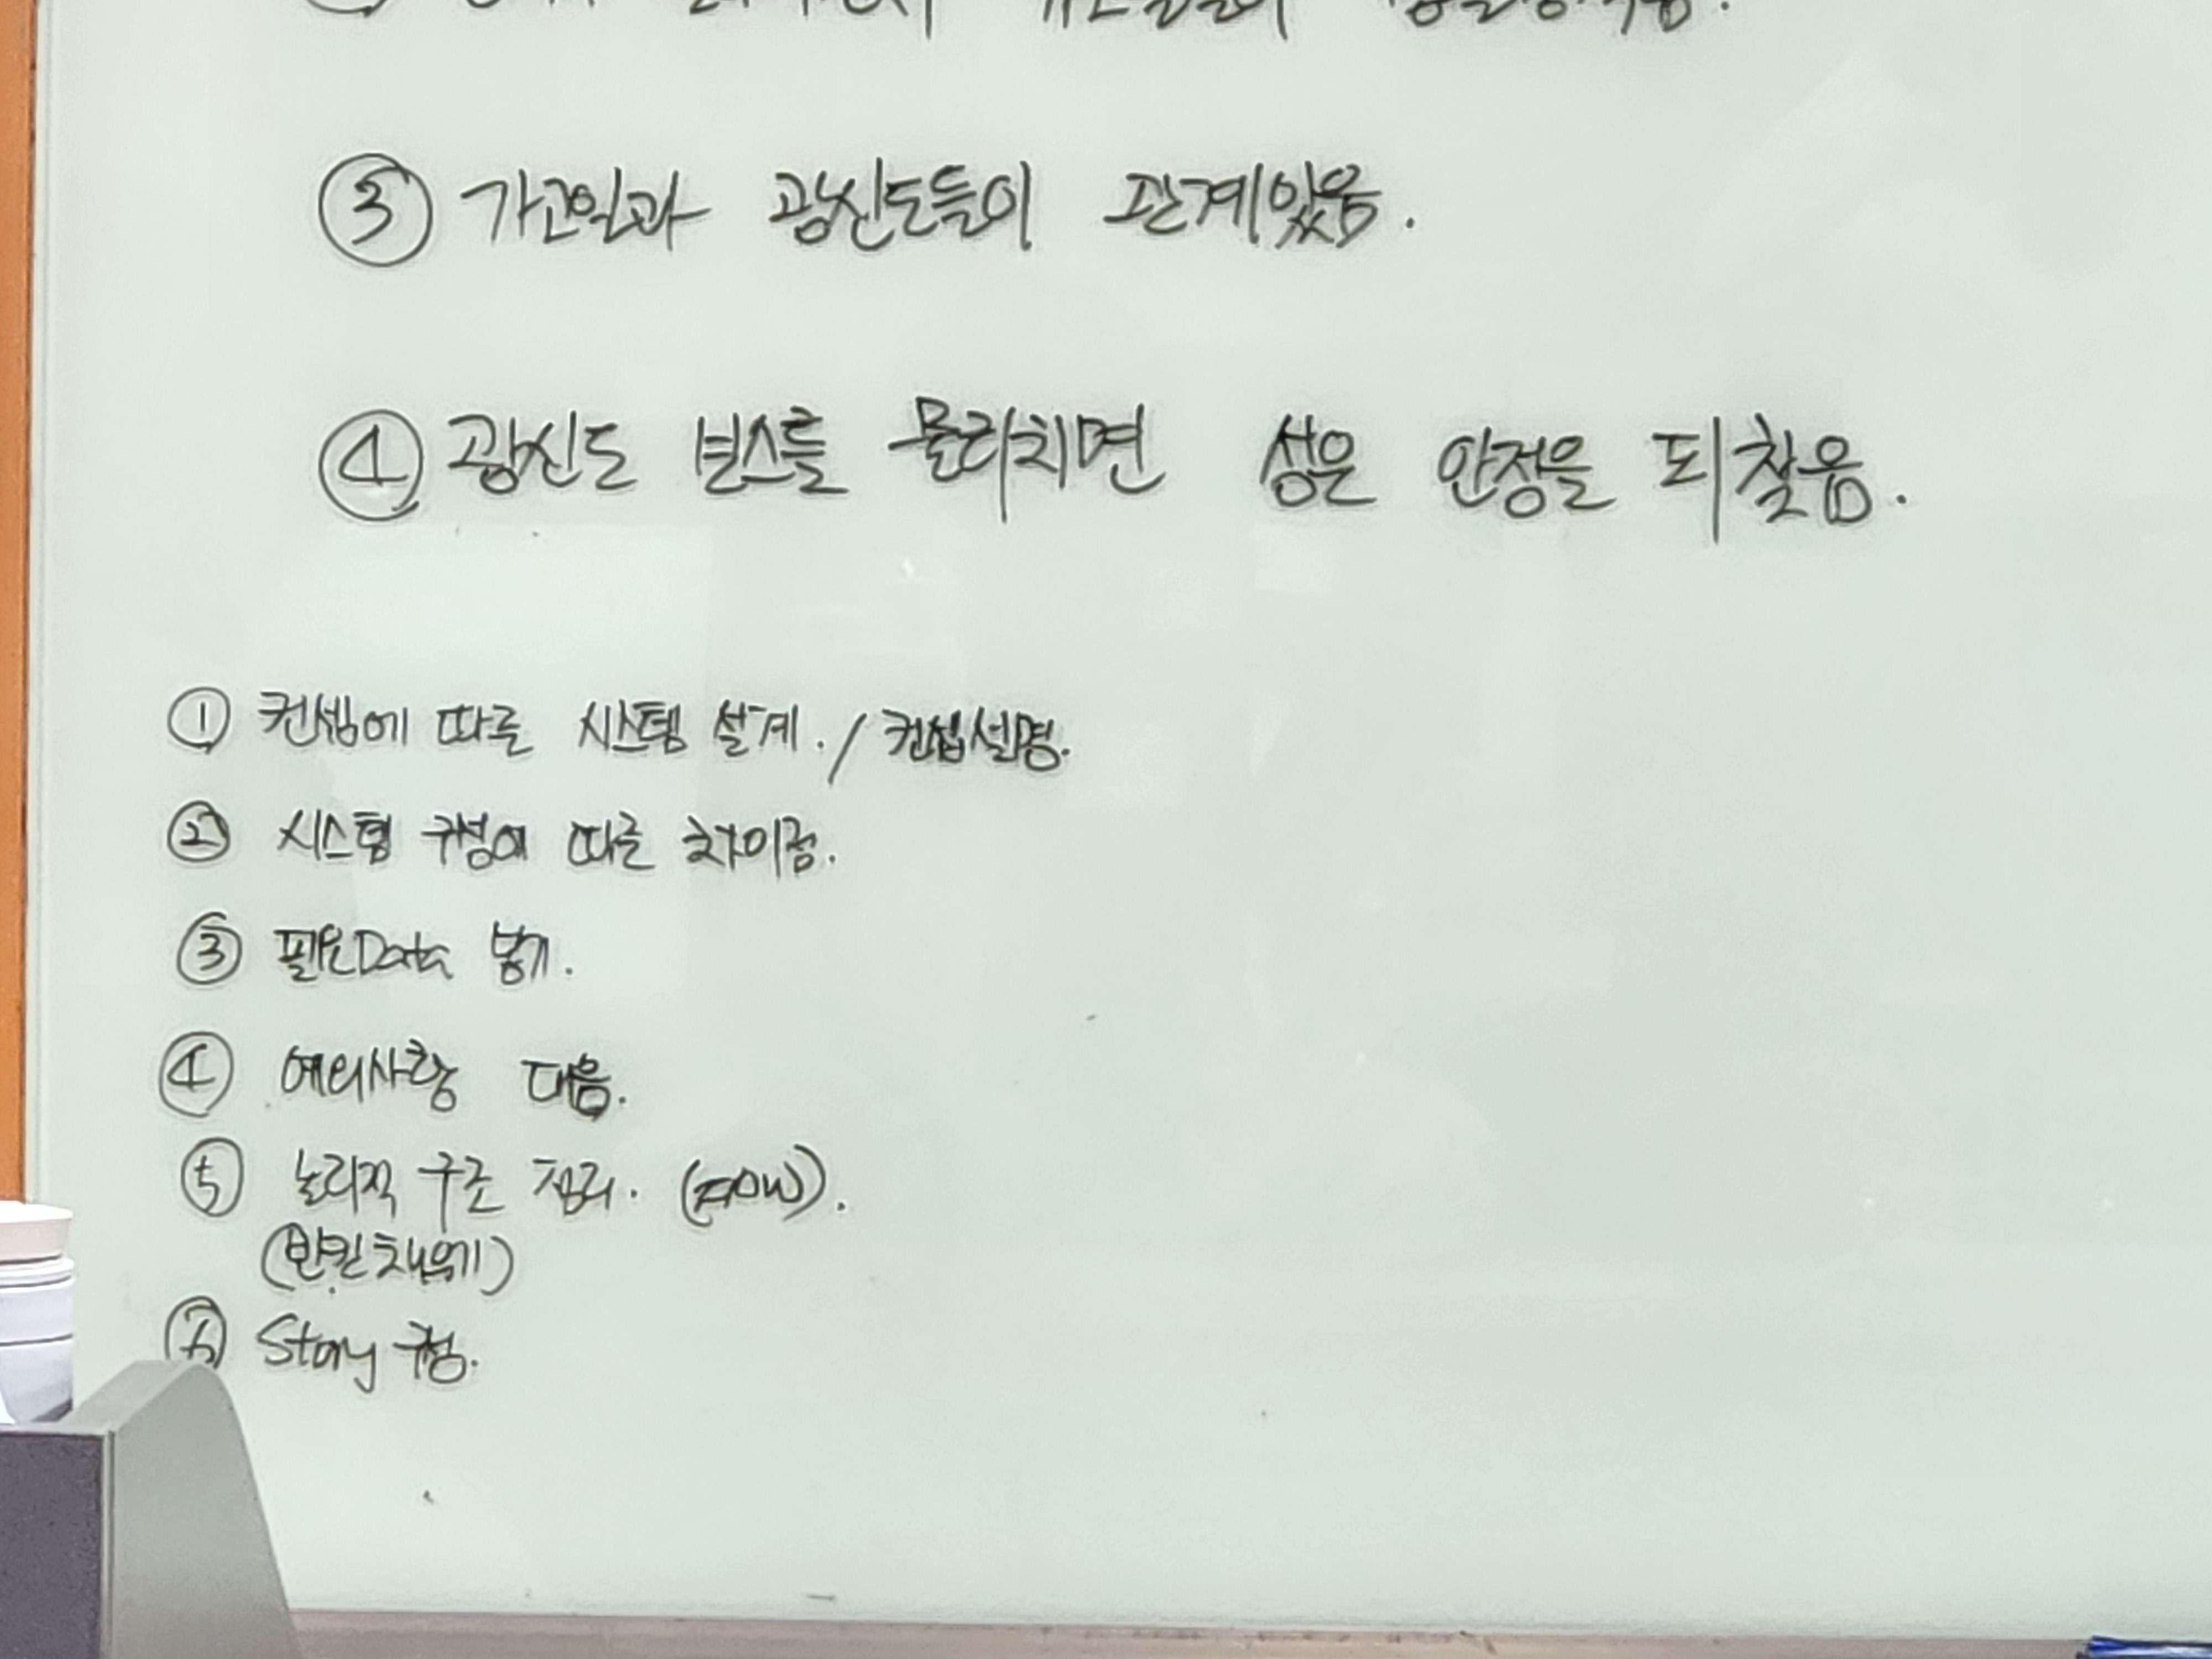 ③ 가고일과 광신도들이 관계있음.
④ 광신도 보스를 물리치면 성은 안정을 되찾음.
① 컨셉에 따른 시스템 설계. / 컨셉설명.
② 시스템 구성에 따른 차이점.
③ 필요Data 넣기.
④ 예외사항 대응.
⑤ 논리적 구조 정리. (FLOW).
(빈칸채우기)
⑥ Story 구성.